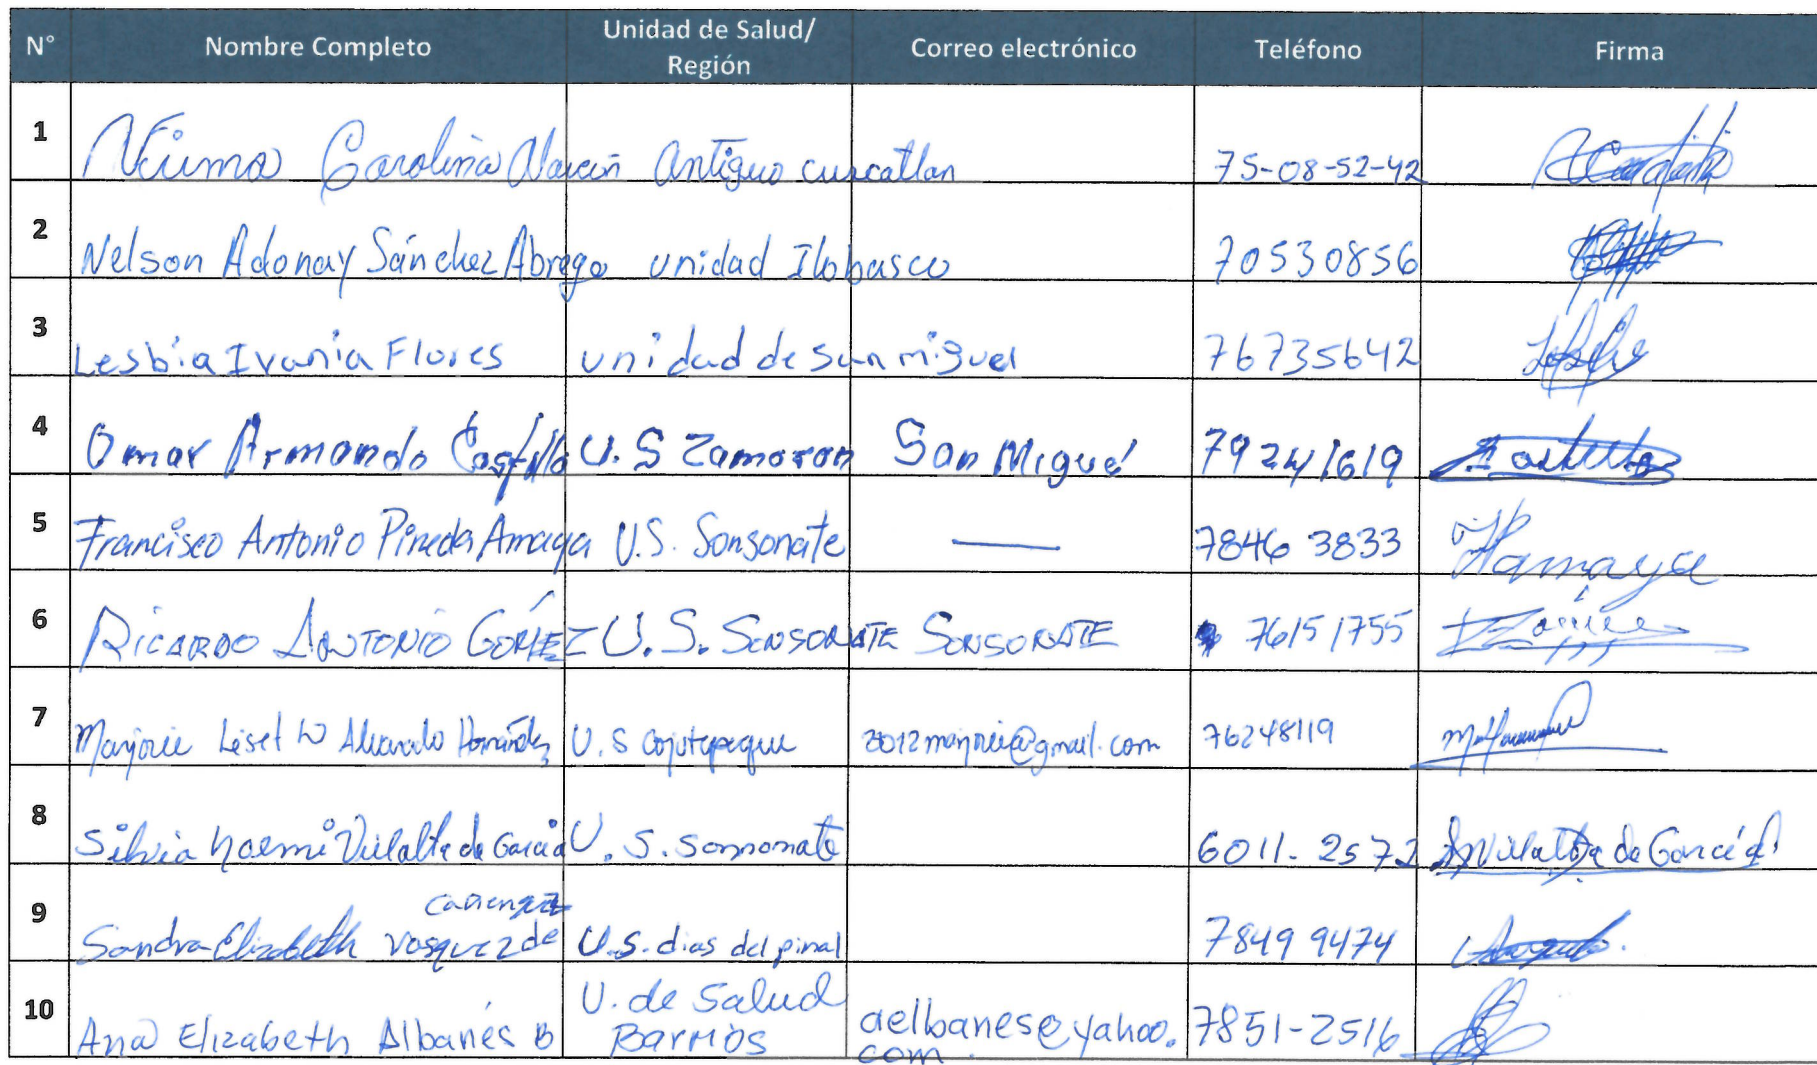 N° Nombre Completo Unidad de Salud/ Región Correo electrónico Teléfono Firma
1 Carolina Antiguo cuscatlan 75-08-52-42
2 Nelson Adonay Sánchez Abrego unidad Ilobasco 70530856
3 Lesbia Ivania Flores unidad de san miguel 76735642
4 Omar Armando Castillo U.S Zamoran San Miguel 79241619
5 Francisco Antonio Pineda Amaya U.S. Sonsonate — 7846 3833 Hamaya
6 RICARDO ANTONIO GÓMEZ U.S. SONSONATE SONSONATE 76151755
7 Marjorie Liset Alvarado Hernández U.S Cojutepeque 76248119
8 Silvia Noemi Villalta de Garcia U.S. Sonsonate 6011-2572 Villalta de García
9 Sandra Elizabeth Vasquez de U.S. dias del pinal 7849 9474
10 Ana Elizabeth Albanés B U. de Salud Barrios aelbanes@yahoo.com. 7851-2516